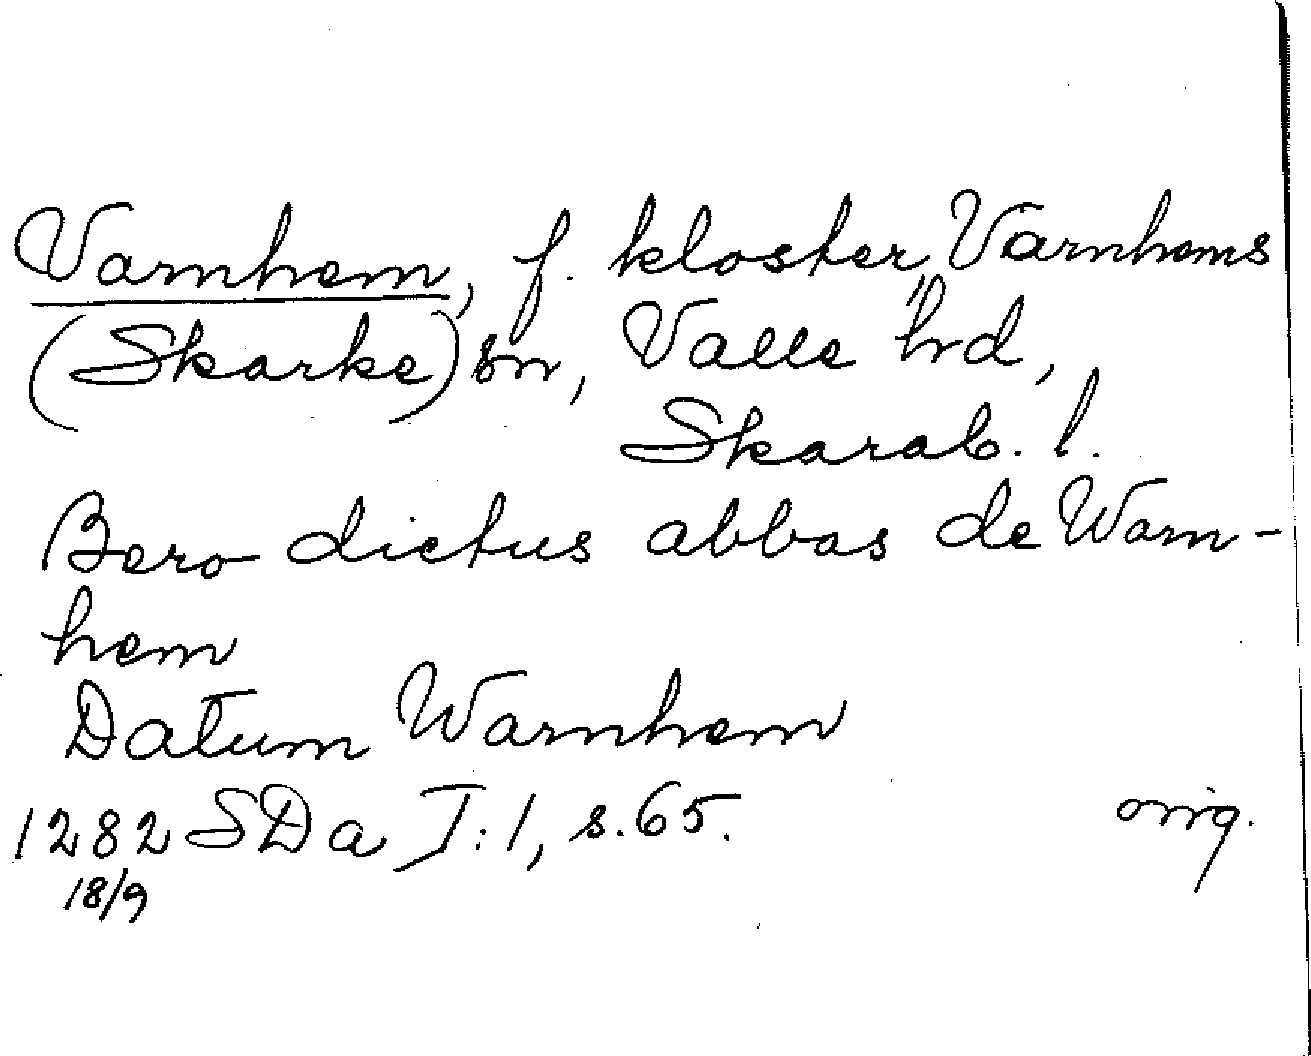 Varnhem, f. kloster, Varnhems
(Skarke) sn, Valle hrd,
Skarab. l.
Bero dictus abbas de Warn-
hem
Datum Warnhem
1282 SDa I:1, s. 65. orig.
18/9